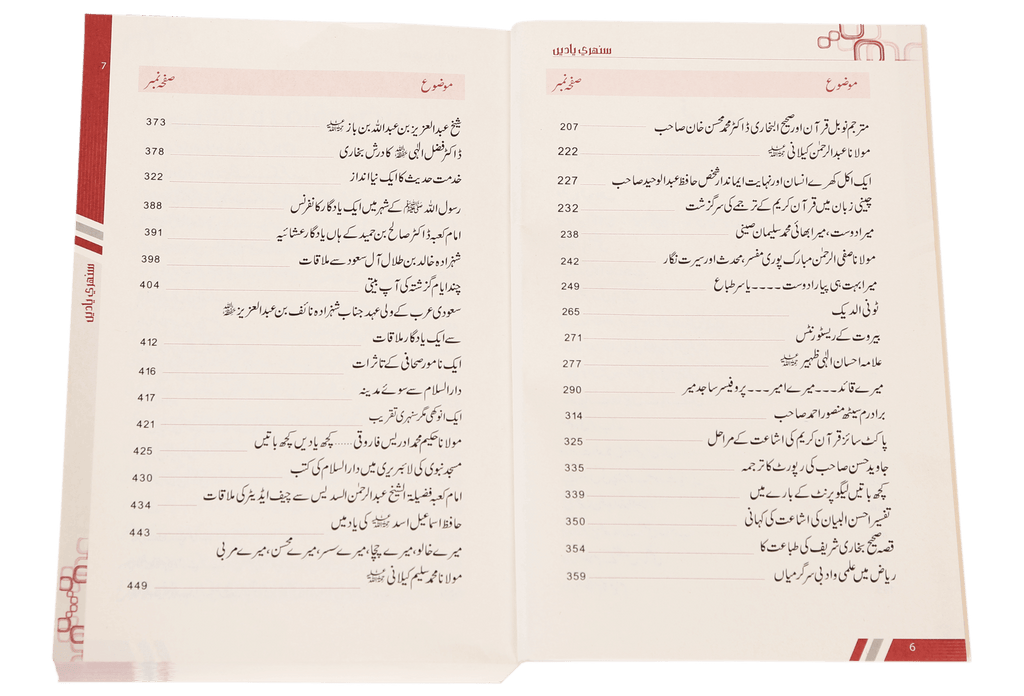 سنھری یادیں
موضوع صفحہ نمبر
مترجم نوبل قرآن اور صحیح البخاری ڈاکٹر محمد محسن خان صاحب 207
مولانا عبدالرحمٰن کیلانی رحمہ اللہ 222
ایک اکل کھرے انسان اور نہایت ایماندار شخص حافظ عبدالوحید صاحب 227
چینی زبان میں قرآن کریم کے ترجمے کی سرگزشت 232
میرا دوست، میرا بھائی محمد سلیمان صینی 238
مولانا صفی الرحمٰن مبارک پوری مفسر، محدث اور سیرت نگار 242
میرا بہت ہی پیارا دوست ۔۔۔۔ یاسر طباع 249
ٹونی الدیک 265
بیروت کے ریسٹورنٹس 271
علامہ احسان الٰہی ظہیر رحمہ اللہ 277
میرے قائد۔۔۔ میرے امیر۔۔۔ پروفیسر ساجد میر 290
برادرم سیٹھ منصور احمد صاحب 314
پاکٹ سائز قرآن کریم کی اشاعت کے مراحل 325
جاوید حسن صاحب کی رپورٹ کا ترجمہ 335
کچھ باتیں لیگو پرنٹ کے بارے میں 339
تفسیر احسن البیان کی اشاعت کی کہانی 350
قصہ صحیح بخاری شریف کی طباعت کا 354
ریاض میں علمی و ادبی سرگرمیاں 359
6
7
سنھری یادیں
موضوع صفحہ نمبر
شیخ عبدالعزیز بن عبداللہ بن باز رحمہ اللہ 373
ڈاکٹر فضل الٰہی حفظہ اللہ کا درس بخاری 378
خدمت حدیث کا ایک نیا انداز 322
رسول اللہ ﷺ کے شہر میں ایک یادگار کانفرنس 388
امام کعبہ ڈاکٹر صالح بن حمید کے ہاں یادگار عشائیہ 391
شہزادہ خالد بن طلال آل سعود سے ملاقات 398
چند ایام گزشتہ کی آپ بیتی 404
سعودی عرب کے ولی عہد جناب شہزادہ نائف بن عبدالعزیز حفظہ اللہ
سے ایک یادگار ملاقات 412
ایک نامور صحافی کے تاثرات 416
دارالسلام سے سوئے مدینہ 417
ایک انوکھی مگر سنہری تقریب 421
مولانا حکیم محمد ادریس فاروقی ..... کچھ یادیں کچھ باتیں 425
مسجد نبوی کی لائبریری میں دارالسلام کی کتب 430
امام کعبہ فضیلۃ الشیخ عبدالرحمٰن السدیس سے چیف ایڈیٹر کی ملاقات 434
حافظ اسماعیل اسد رحمہ اللہ کی یاد میں 443
میرے خالو، میرے چچا، میرے سسر، میرے محسن، میرے مربی
مولانا محمد سلیم کیلانی رحمہ اللہ 449